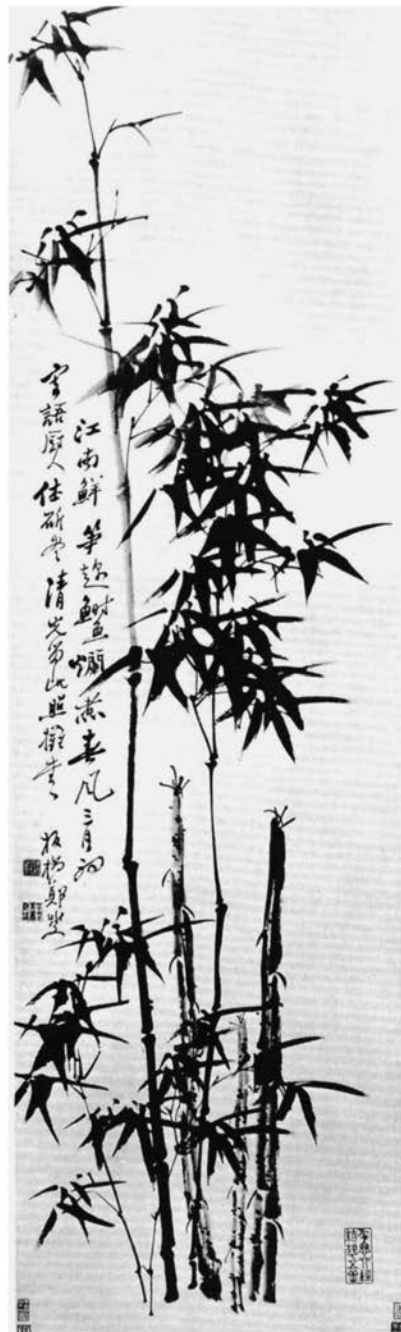 江南鮮筍趁鰣魚爛煮春風三月初
寄語厨人休斫盡清光留此照攤書
板橋鄭燮